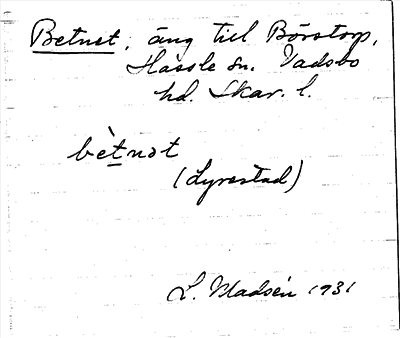 Betnet, äng till Börstorp,
Hassle sn. Vadsbo
hd. Skar. l.
bètnət
(Lyrestad)
L. Madsén 1931